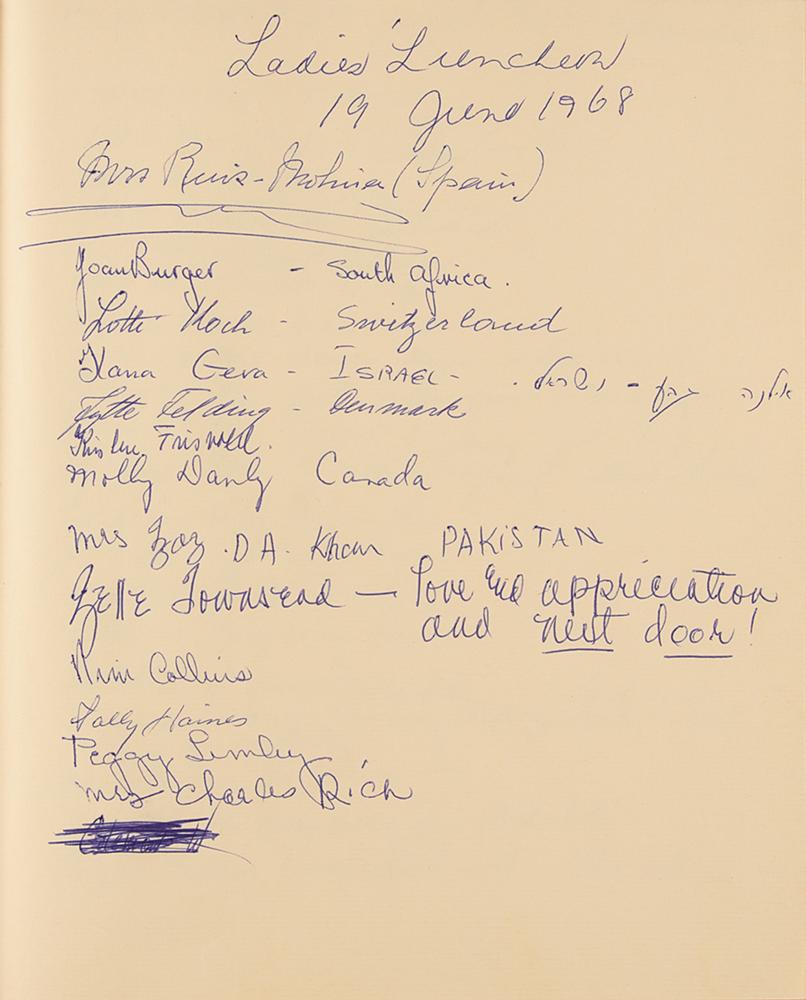 Ladies' Luncheon
19 June 1968
Mrs Ruiz-Molina (Spain)
Joan Burger - South Africa.
Lotte Koch - Switzerland
Ilana Geva - ISRAEL - אילנה גבע - ישראל.
Jytte Felding - Denmark
Kirsten Friswold.
Molly Danly Canada
Mrs D.A. Khan PAKISTAN
ZEllE Townsend — Love and appreciation
and next door!
Collins
Sally Haines
Peggy Lumley
Mrs Charles Rich